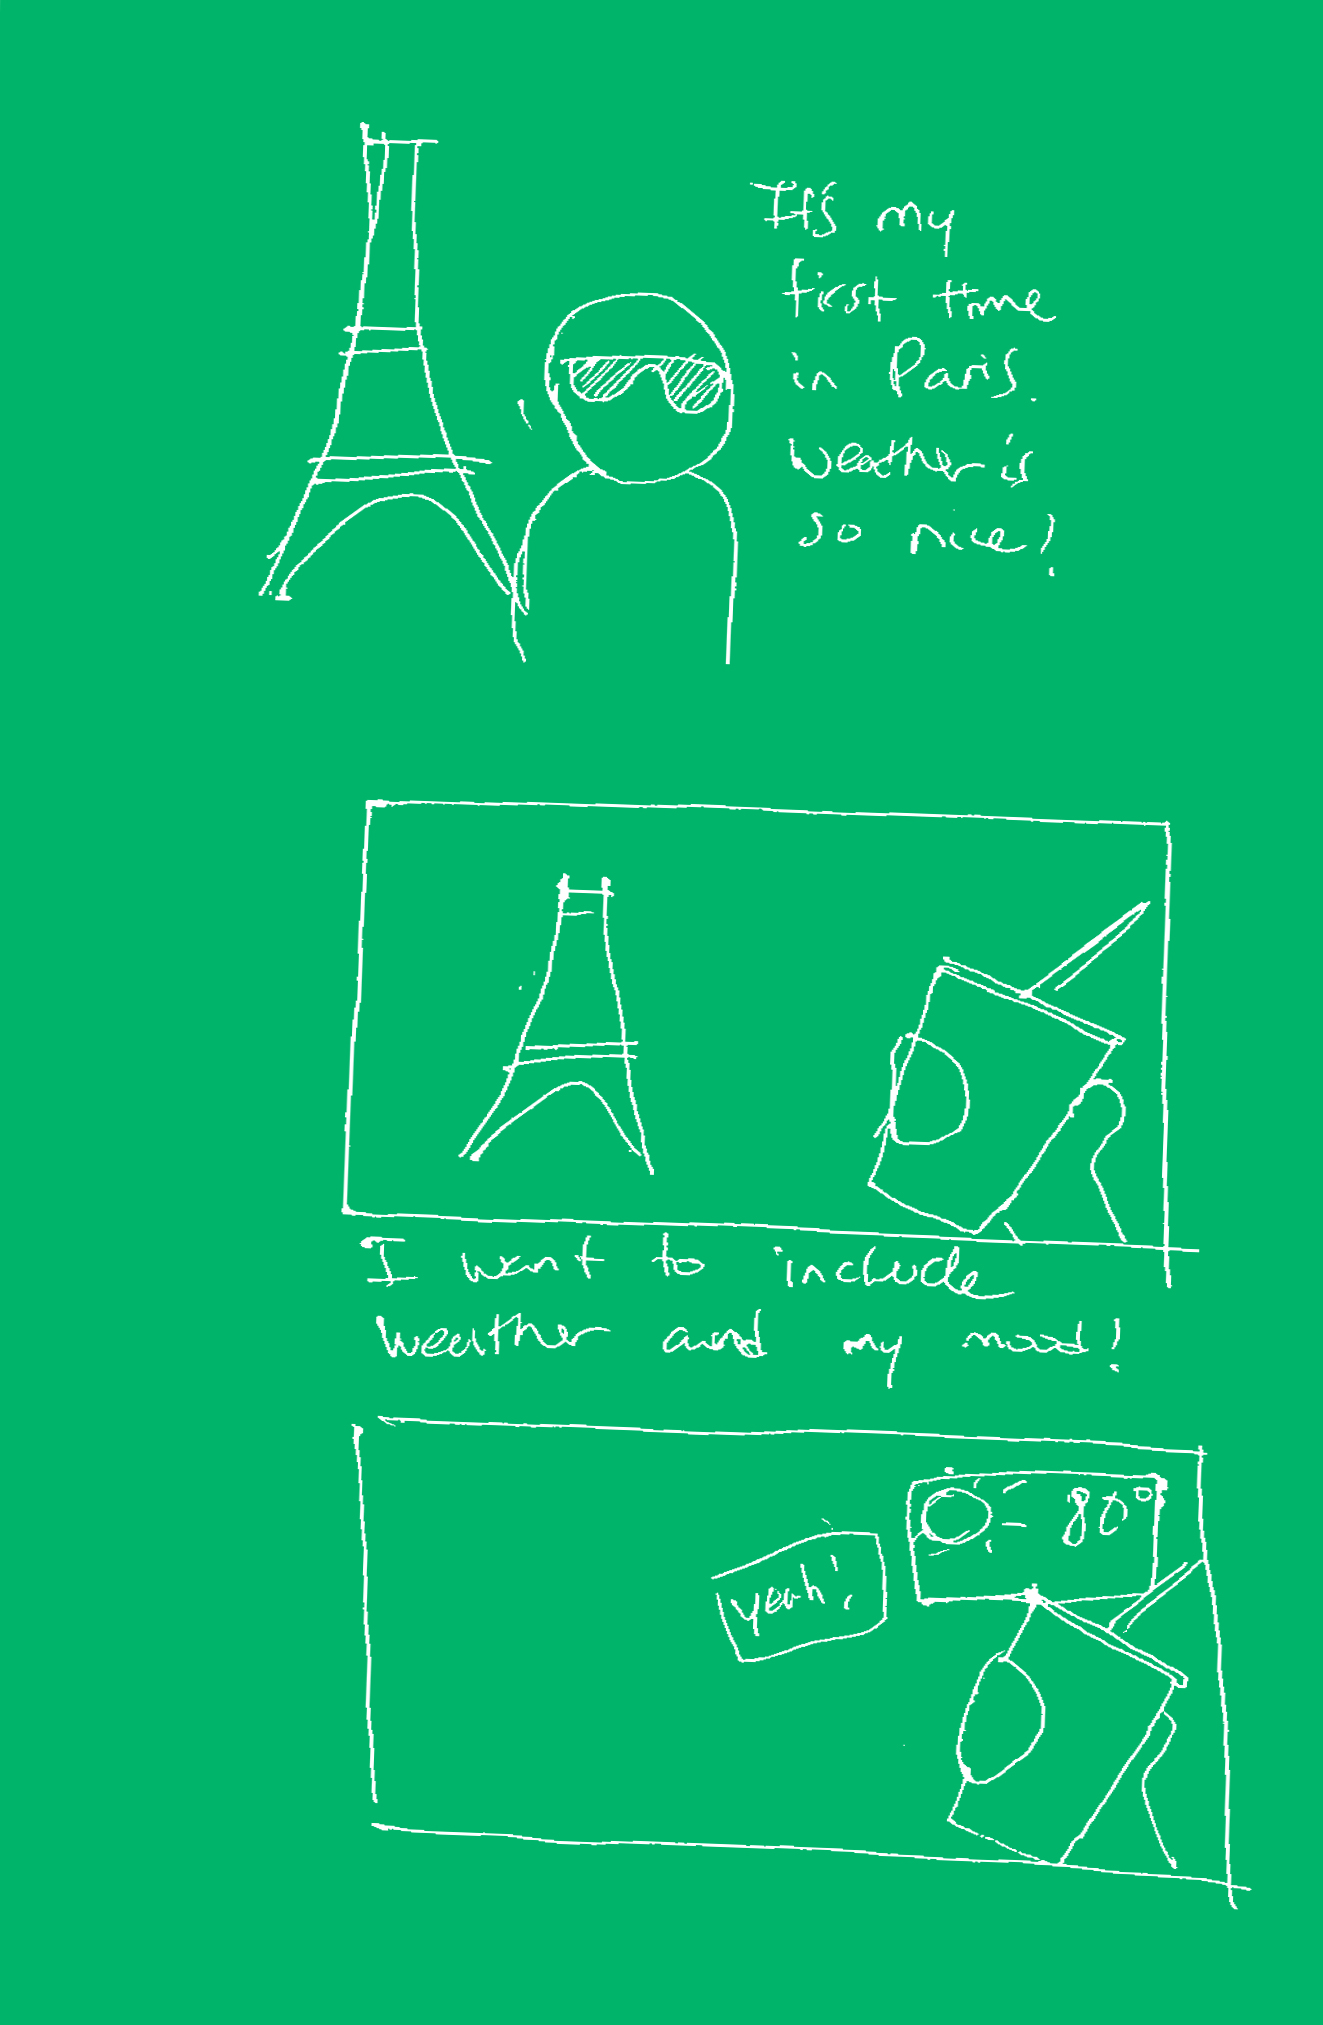 It's my
first time
in Paris.
Weather is
so nice!
I want to include
weather and my mood!
80°
yeah!